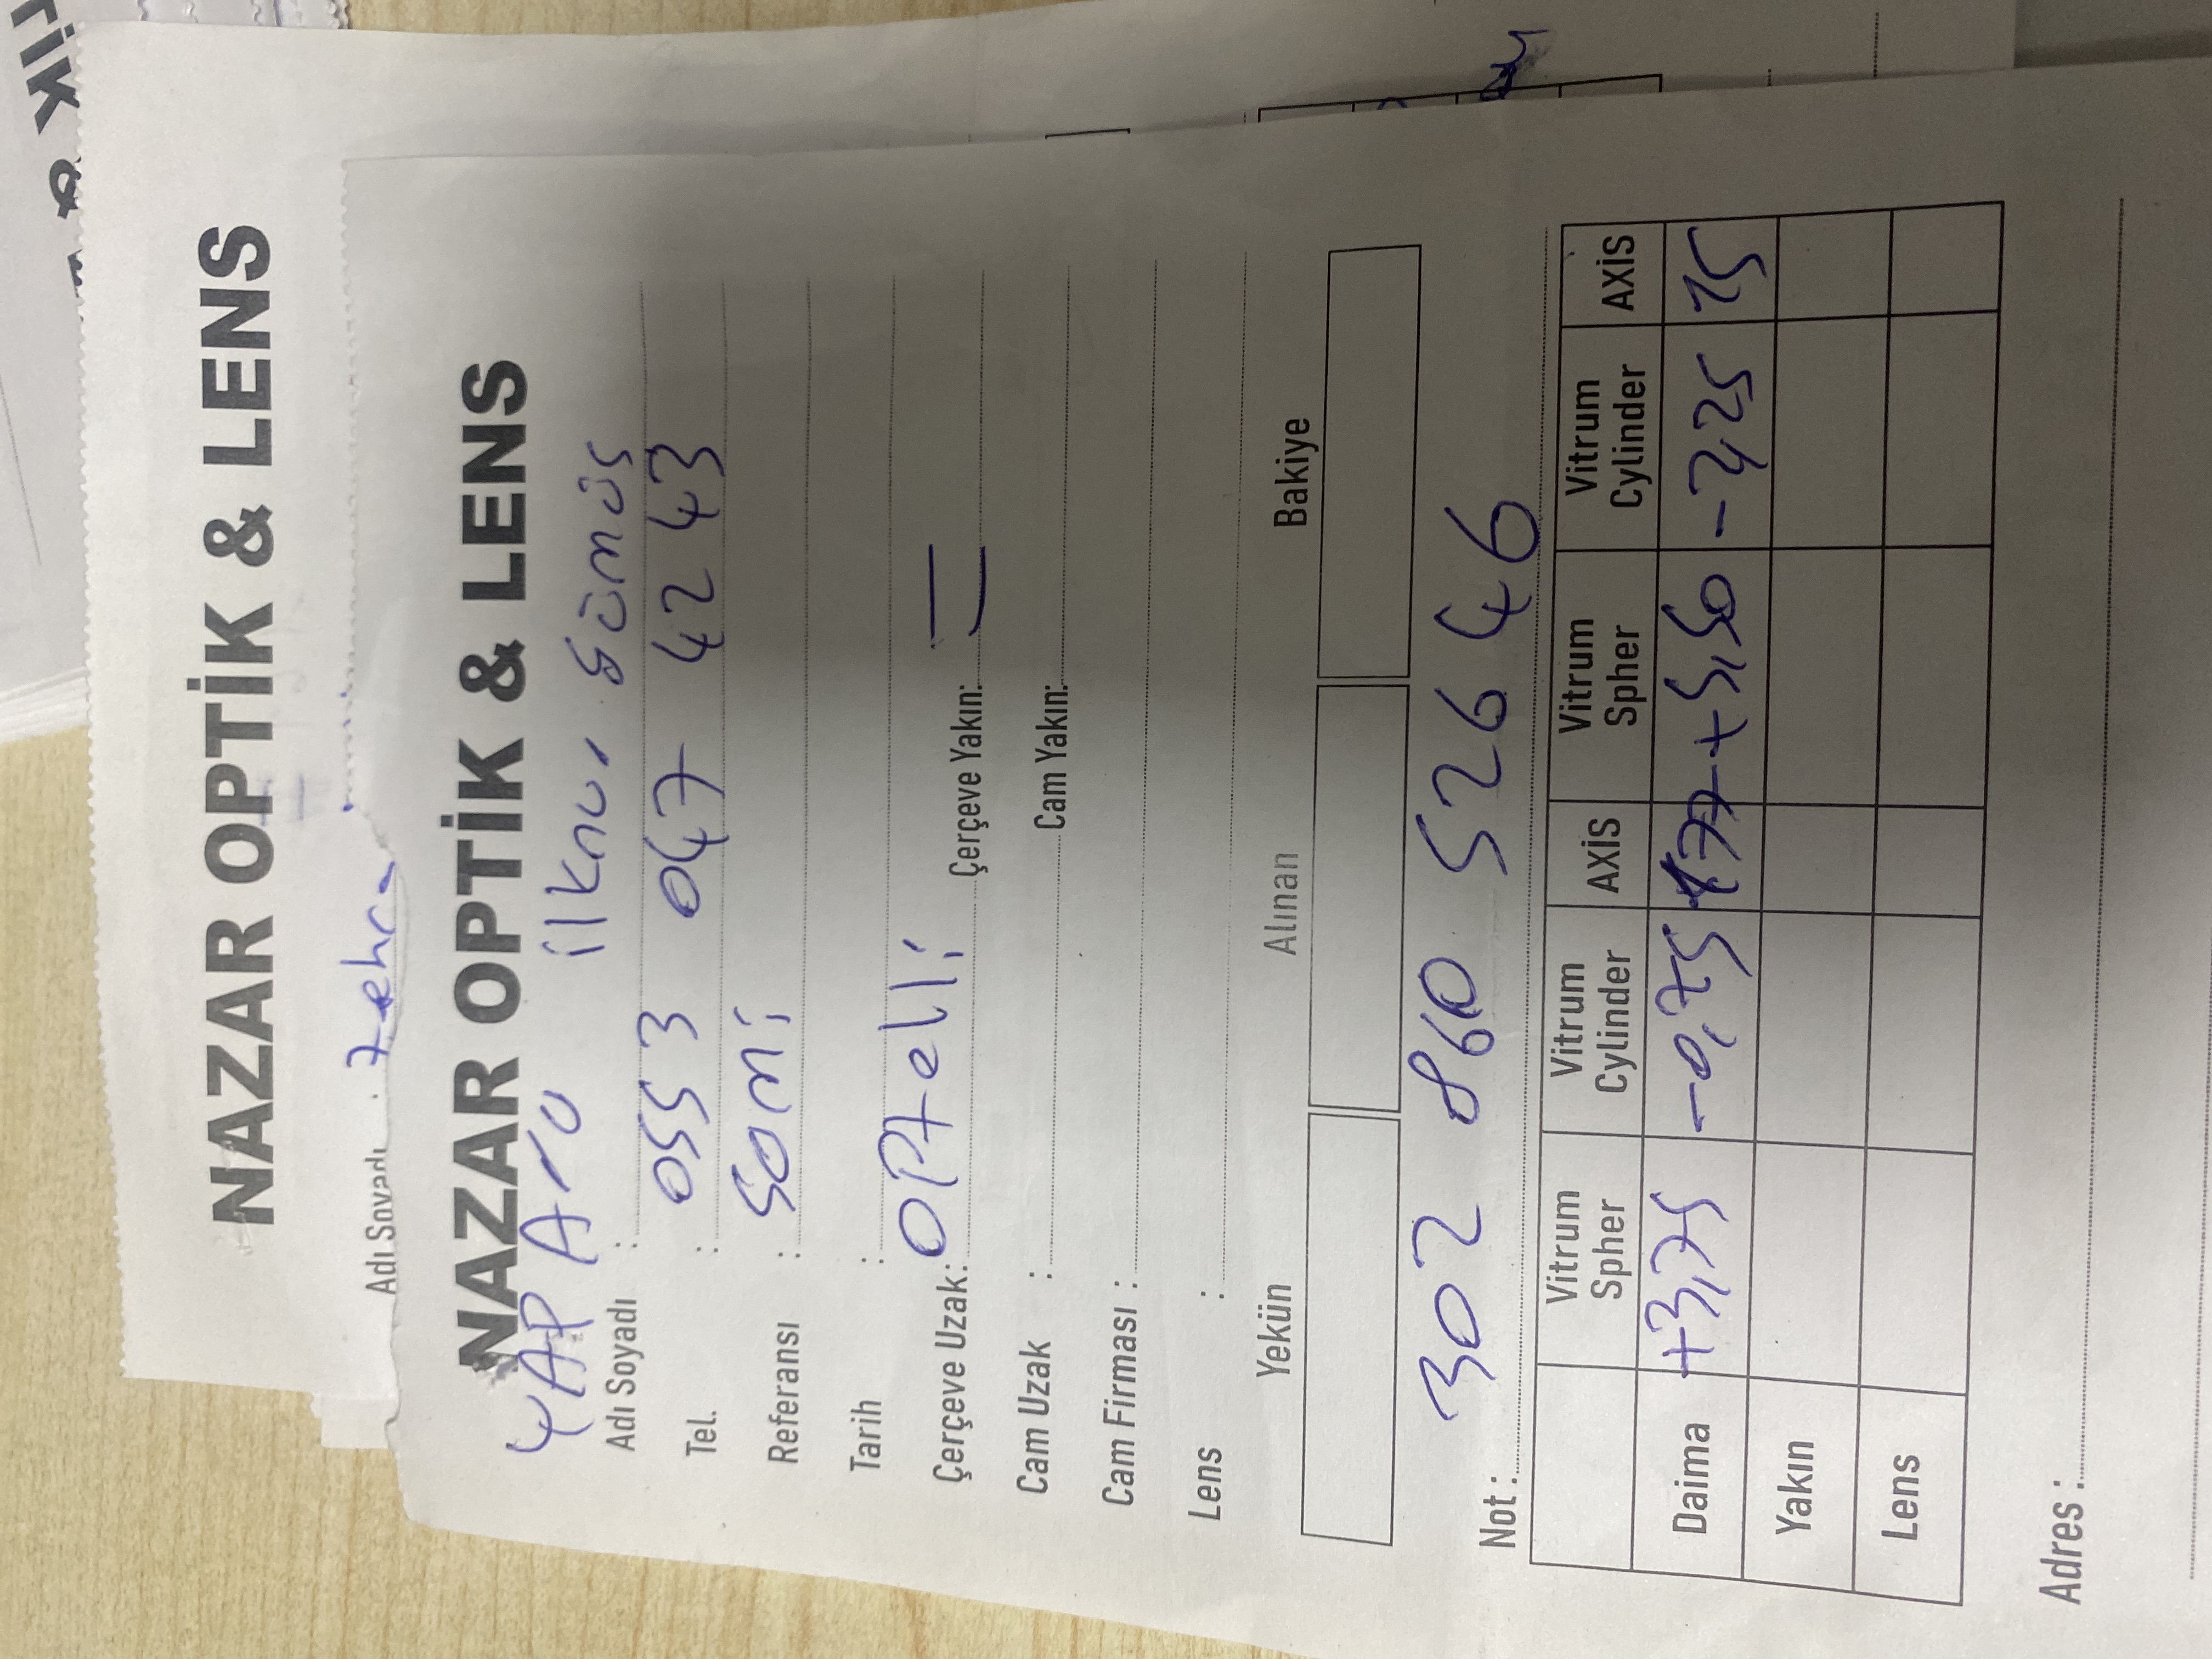 TİK &
NAZAR OPTİK & LENS
Adı Soyadı : Zehra
NAZAR OPTİK & LENS
YAP Ara
Adı Soyadı : ilknur Gümüş
Tel. : 0553 047 42 43
Referansı : Sami
Tarih :
Çerçeve Uzak: OPtelli Çerçeve Yakın: =
Cam Uzak : Cam Yakın:
Cam Firması :
Lens :
Yekün Alınan Bakiye
Not : 302 860 526 46
Vitrum Spher Vitrum Cylinder AXİS Vitrum Spher Vitrum Cylinder AXİS
Daima +3,75 -0,75 177 +5,50 -2,25 15
Yakın
Lens
Adres :